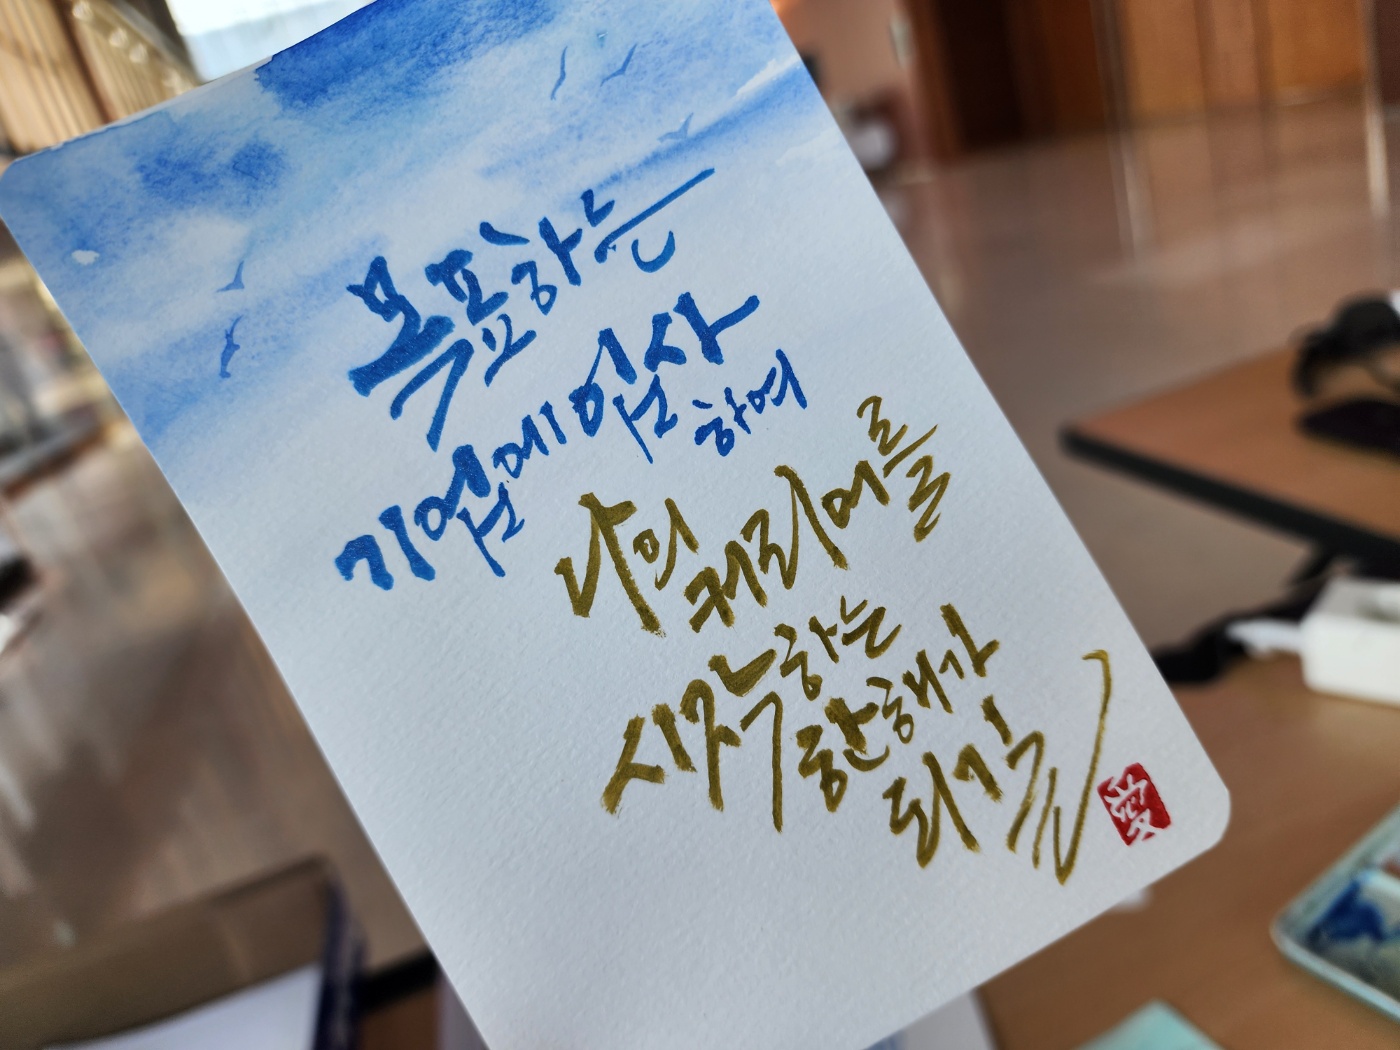 목표하는
기업에 입사
하여
나의 커리어를
시작하는
한 해가
되기를
愛